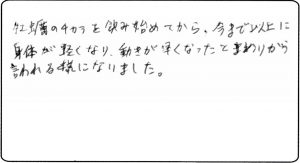 紅蠣のチカラを飲み始めてから、今まで以上に
身体が軽くなり、動きが早くなったとまわりから
言われる様になりました。